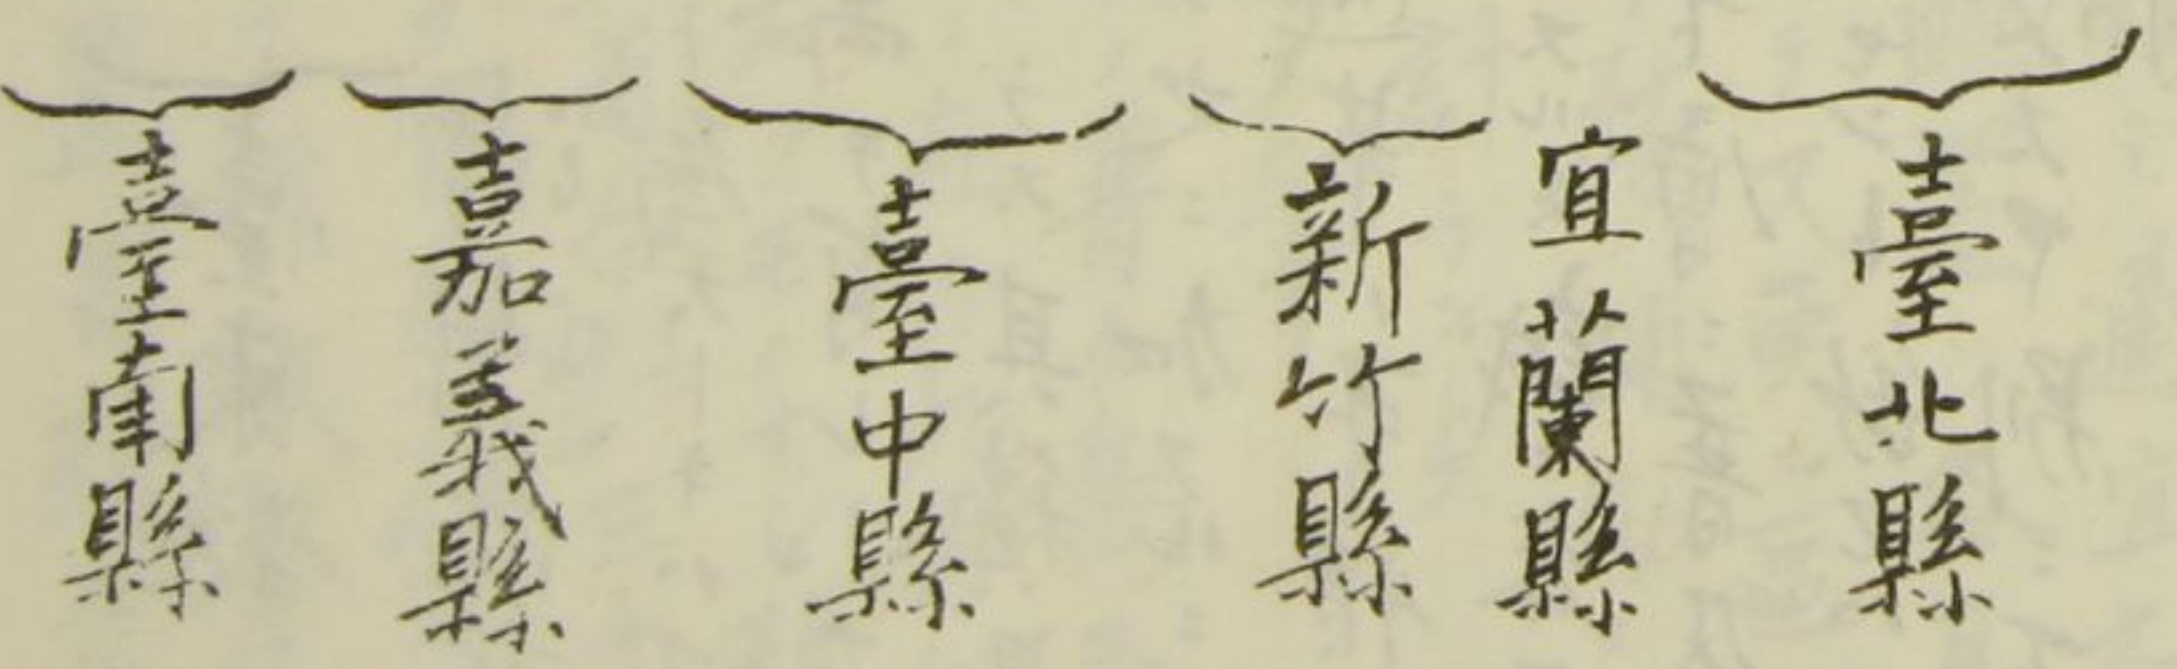 臺北縣
宜蘭縣
新竹縣
臺中縣
嘉義縣
臺南縣